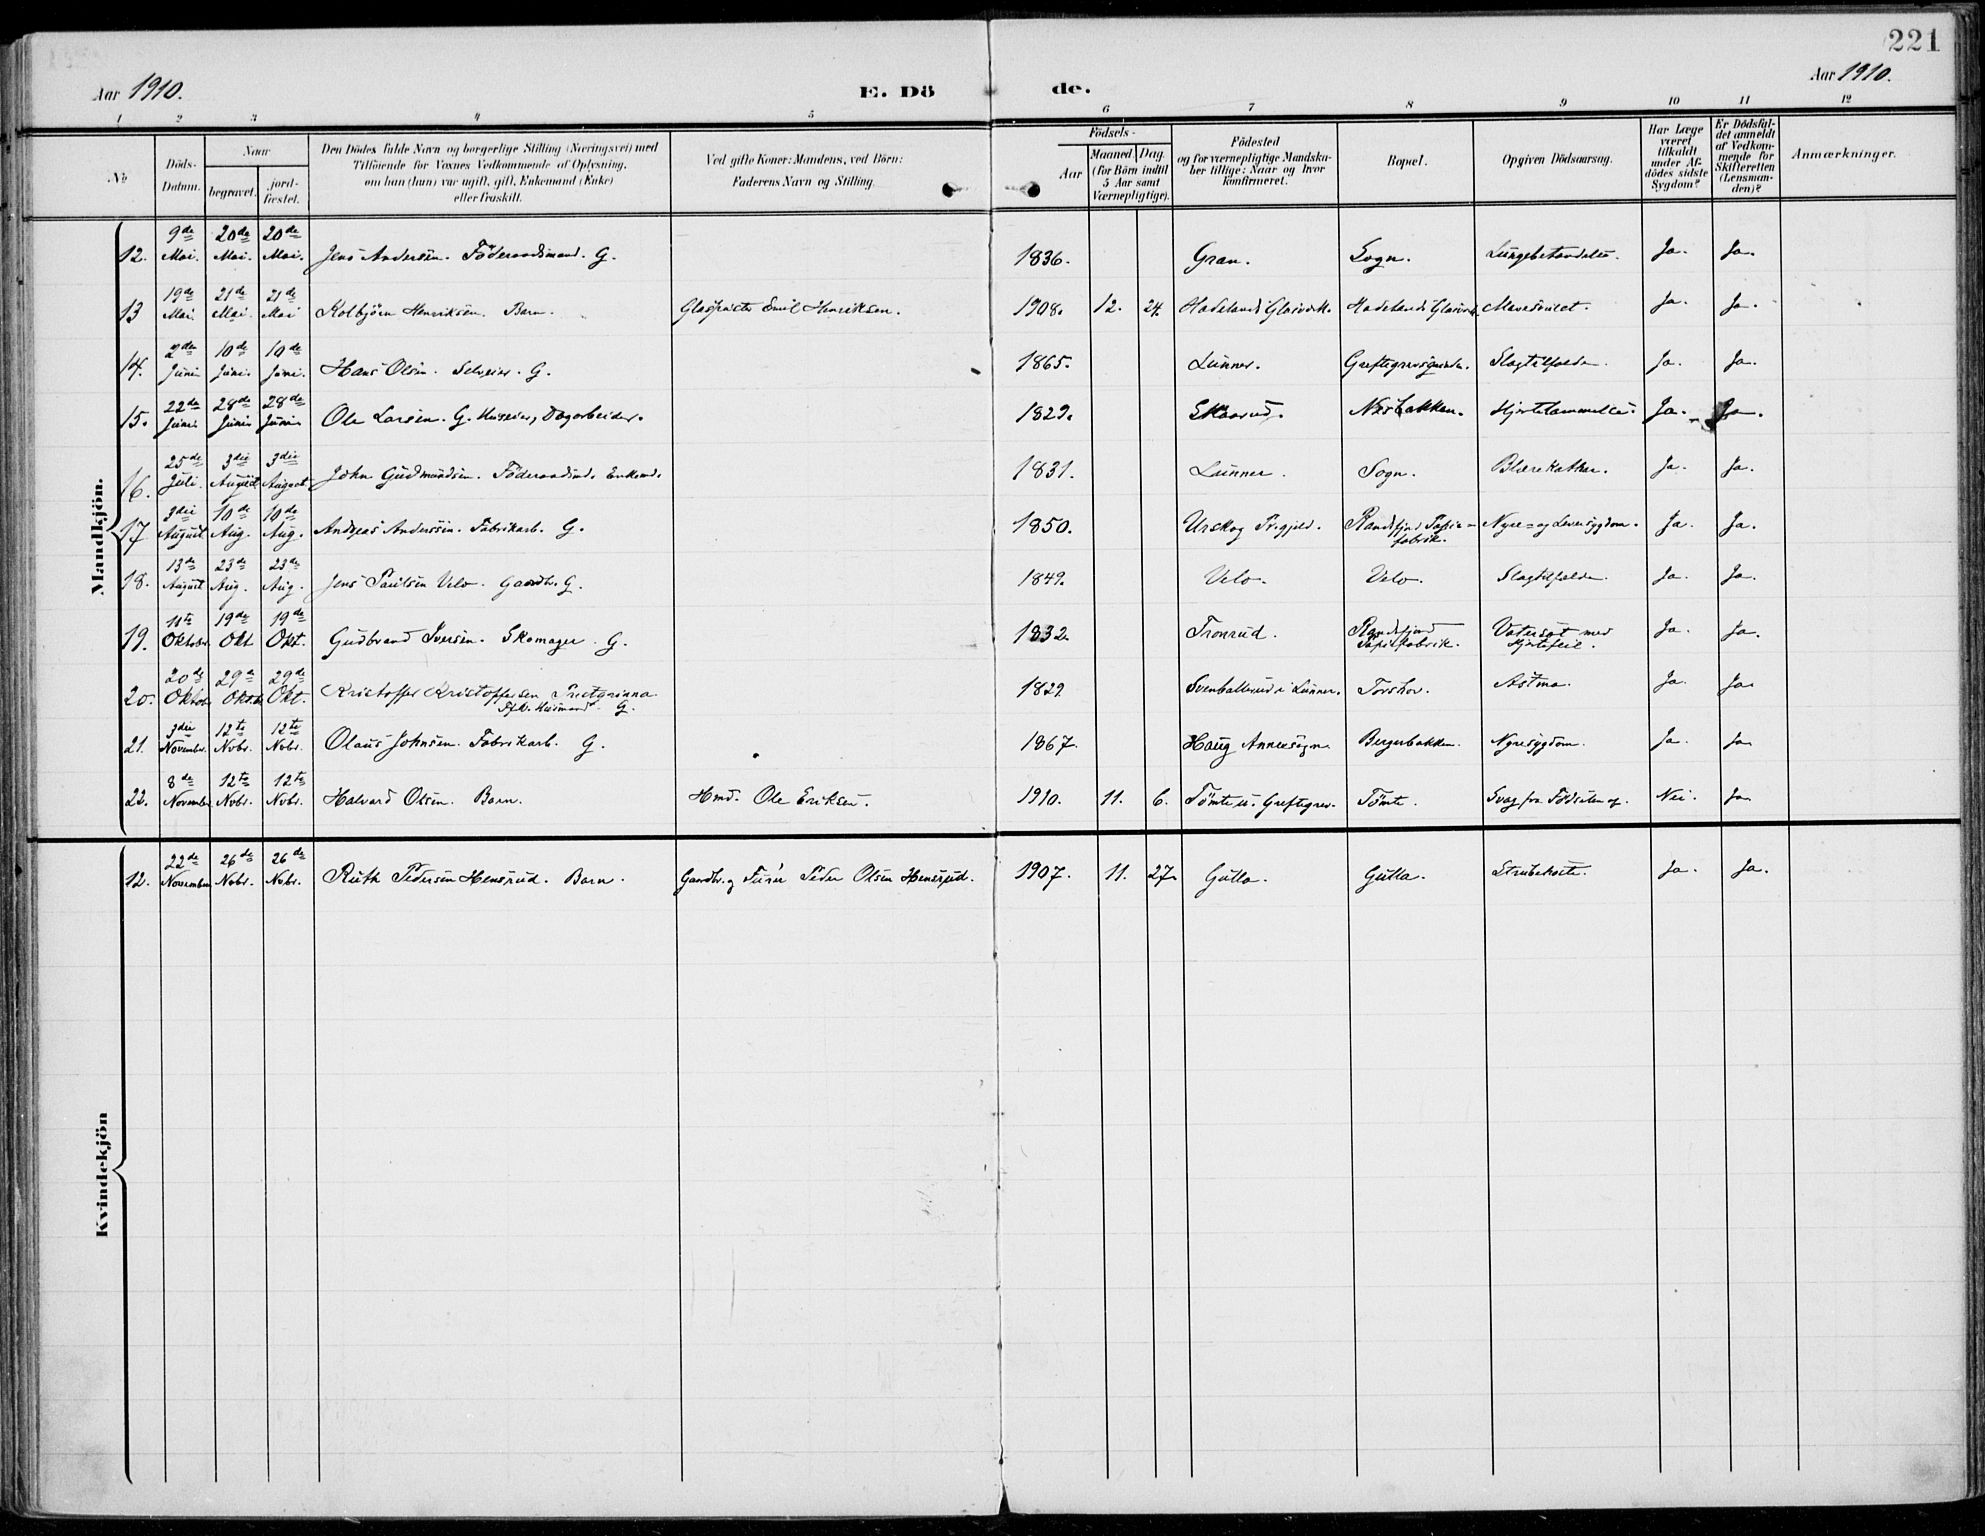 221
Aar 1910. E. Dö de. Aar 1910.
1 2 3 4 5 6 7 8 9 10 11 12
No
Döds-
Datum.
Naar
begravet.
jord-
fæstet.
Den Dödes fulde Navn og borgerlige Stilling (Næringsvei) med
Tilföiende for Voxnes Vedkommende af Oplysning,
om han (hun) var ugift, gift, Enkemand (Enke)
eller fraskilt.
Ved gifte Koner: Mandens, ved Börn:
Faderens Navn og Stilling.
Födsels-
Aar
Maaned. Dag.
(for Börn indtil
5 Aar samt
Værnepligtige).
Födested
og for værnepligtige Mandska-
ber tillige: Naar og hvor
konfirmeret.
Bopæl.
Opgiven Dödsaarsag.
Har Læge
været
tilkaldt
under Af-
dödes sidste
Sygdom?
Er Dödsfal-
det anmeldt
af Vedkom-
mende for
Skifteretten
(Lensman-
den)?
Anmærkninger.
Mandkjön.
9de 20de 20de
12. Mai. Mai. Mai. Jens Andersen. Föderaadsmand. G. 1836. Gran. Sogn. Lungebetændelse. Ja. Ja.
19de 21de 21de
13 Mai. Mai. Mai Kolbjörn Henriksen. Barn. Glaspuster Emil Henriksen. 1908. 12. 24. Hadelands Glasværk. Hadelands Glasværk. Ja. Ja.
2den 10de 10de
14. Juni Juni. Juni. Hans Olsen. Selveier. G. 1865. Lunner. Slagtilfælde. Ja. Ja.
22de 28de 28de
15. Juni. Juni. Juni. Ole Larsen. G. Huseier, Dagarbeider. 1829. Skaarud. Næsbakken. Hjertelammelse. Ja. Ja.
25de 3die 3die
16. Juli. August August. John Gudmundsen. Föderaadsmd. Enkemd. 1831. Lunner. Sogn. Blærekatar. Ja. Ja.
3die 10de 10de
17 August Aug. Aug. Andreas Anderssen. Fabrikarb. G. 1850. Urskog Prgjeld. Randsfjord Papir- Nyre- og Leversygdom. Ja. Ja.
fabrik.
13de 23de 23de
18. August Aug. Aug. Jens Paulsen Velo. Gaardbr. G. 1849. Velo. Velo. Slagtilfælde. Ja. Ja.
11te 19de 19de
19. Oktober Okt Okt. Gudbrand Iversen. Skomager. G. 1832. Tronrud. Randsfjord Vatersot med Ja. Ja.
Papirfabrik. Hjertefeil.
20de 29de 29de
20. Oktob. Oktb. Okt. Kristoffer Kristoffersen 1829 Svenballerud i Lunner. Torshov. Astma. Ja. Ja.
Husmand. G.
3die 12te 12te
21. Novembr. Nobr. Nobr. Olaus Johnsen. Fabrikarb. G. 1867. Haug Annexsogn. Bergerbakken. Nyresygdom. Ja. Ja
8de 12te 12te
22. November Nobr. Nobr. Halvard Olsen. Barn. Hmd. Ole Eriksen. 1910. 11. 6. Tömte u. Greftegrev. Tömte. Svag fra Födselen af. Nei. Ja
Kvindekjön
22de 26de 26de
12. November Nobr. Nobr. Ruth Pedersen Hensrud. Barn. Gaardbr. og Peder Olsen Hensrud. 1907. 11. 27. Gulla. Gulla. Strubehoste. Ja. Ja.